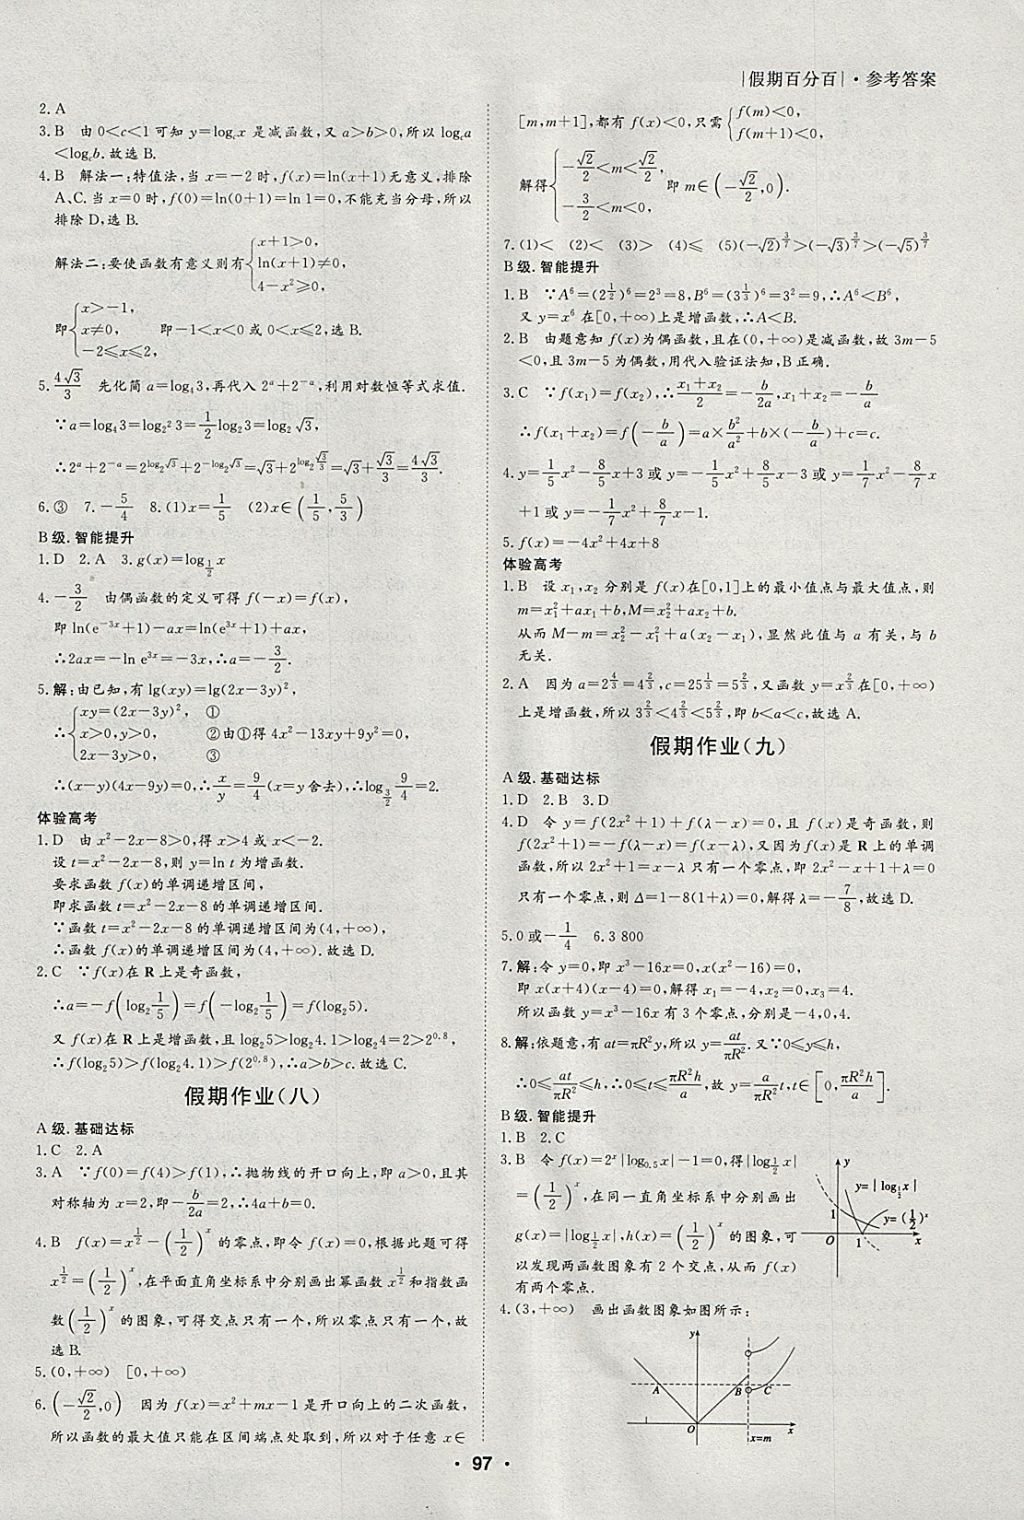 |假期百分百|·参考答案
2. A
3. B　由 0<c<1 可知 y=log_c x 是减函数,又 a>b>0,所以 log_c a
<log_c b. 故选 B.
4. B　解法一:特值法,当 x=-2 时,f(x)=ln(x+1)无意义,排除
A、C. 当 x=0 时,f(0)=ln(0+1)=ln 1=0,不能充当分母,所以
排除 D,选 B.
解法二:要使函数有意义则有{x+1>0,
ln(x+1)≠0,
4-x²≥0,
即{x>-1,
x≠0,　　即-1<x<0 或 0<x≤2,选 B.
-2≤x≤2,
5. 4√3/3　先化简 a=log₄3,再代入 2^a+2^(-a),利用对数恒等式求值.
∵a=log₄3=log_(2²)3=1/2 log₂3=log₂√3,
∴2^a+2^(-a)=2^(log₂√3)+2^(-log₂√3)=√3+2^(log₂ √3/3)=√3+√3/3=4√3/3.
6. ③　7. -5/4　8. (1)x=1/5　(2)x∈(1/5,5/3)
B 级. 智能提升
1. D　2. A　3. g(x)=log_(1/2) x
4. -3/2　由偶函数的定义可得 f(-x)=f(x),
即 ln(e^(-3x)+1)-ax=ln(e^(3x)+1)+ax,
∴2ax=-ln e^(3x)=-3x,∴a=-3/2.
5. 解:由已知,有 lg(xy)=lg(2x-3y)²,
∴{xy=(2x-3y)²,　①
x>0,y>0,　②由①得 4x²-13xy+9y²=0,
2x-3y>0,　③
∴(x-y)(4x-9y)=0,∴x/y=9/4(x=y 舍去),∴log_(3/2) 9/4=2.
体验高考
1. D　由 x²-2x-8>0,得 x>4 或 x<-2.
设 t=x²-2x-8,则 y=ln t 为增函数.
要求函数 f(x)的单调递增区间,
即求函数 t=x²-2x-8 的单调递增区间.
∵函数 t=x²-2x-8 的单调递增区间为(4,+∞),
∴函数 f(x)的单调递增区间为(4,+∞). 故选 D.
2. C　∵f(x)在 R 上是奇函数,
∴a=-f(log₂1/5)=f(-log₂1/5)=f(log₂5).
又 f(x)在 R 上是增函数,且 log₂5>log₂4.1>log₂4=2>2^0.8,
∴f(log₂5)>f(log₂4.1)>f(2^0.8),∴a>b>c. 故选 C.
假期作业(八)
A 级. 基础达标
1. C　2. A
3. A　∵f(0)=f(4)>f(1),∴抛物线的开口向上,即 a>0,且其
对称轴为 x=2,即-b/2a=2,∴4a+b=0.
4. B　f(x)=x^(1/2)-(1/2)^x 的零点,即令 f(x)=0,根据此题可得
x^(1/2)=(1/2)^x,在平面直角坐标系中分别画出幂函数 x^(1/2)和指数函
数(1/2)^x 的图象,可得交点只有一个,所以零点只有一个,故
选 B.
5. (0,+∞)　[0,+∞)
6. (-√2/2,0)　因为 f(x)=x²+mx-1 是开口向上的二次函数,
所以函数的最大值只能在区间端点处取到,所以对于任意 x∈
[m,m+1],都有 f(x)<0,只需{f(m)<0,
f(m+1)<0,
解得{-√2/2<m<√2/2,
-3/2<m<0,　即 m∈(-√2/2,0).
7. (1)<　(2)<　(3)>　(4)≤　(5)(-√2)^(3/7)>(-√3)^(3/7)>(-√5)^(3/7)
B 级. 智能提升
1. B　∵A⁶=(2^(1/2))⁶=2³=8,B⁶=(3^(1/3))⁶=3²=9,∴A⁶<B⁶,
又 y=x⁶ 在[0,+∞)上是增函数,∴A<B.
2. B　由题意知 f(x)为偶函数,且在(0,+∞)是减函数,故 3m-5
<0,且 3m-5 为偶数,用代入验证法知,B 正确.
3. C　∵f(x₁)=f(x₂),∴(x₁+x₂)/2=-b/2a,x₁+x₂=-b/a
∴f(x₁+x₂)=f(-b/a)=a×b²/a²+b×(-b/a)+c=c.
4. y=1/5x²-8/5x+3 或 y=-1/5x²+8/5x-3 或 y=1/7x²-8/7x
+1 或 y=-1/7x²+8/7x-1.
5. f(x)=-4x²+4x+8
体验高考
1. B　设 x₁,x₂ 分别是 f(x)在[0,1]上的最小值点与最大值点,则
m=x₁²+ax₁+b,M=x₂²+ax₂+b.
从而 M-m=x₂²-x₁²+a(x₂-x₁),显然此值与 a 有关,与 b
无关.
2. A　因为 a=2^(4/3)=4^(2/3),c=25^(1/3)=5^(2/3),又函数 y=x^(2/3)在[0,+∞)
上是增函数,所以 3^(2/3)<4^(2/3)<5^(2/3),即 b<a<c,故选 A.
假期作业(九)
A 级. 基础达标
1. D　2. B　3. D
4. D　令 y=f(2x²+1)+f(λ-x)=0,且 f(x)是奇函数,则
f(2x²+1)=-f(λ-x)=f(x-λ),又因为 f(x)是 R 上的单调
函数,所以 2x²+1=x-λ 只有一个零点,即 2x²-x+1+λ=0
只有一个零点,则 Δ=1-8(1+λ)=0,解得 λ=-7/8,故选 D.
5. 0 或-1/4　6. 3 800
7. 解:令 y=0,即 x³-16x=0,x(x²-16)=0,
即 x(x+4)(x-4)=0,解得 x₁=-4,x₂=0,x₃=4.
所以函数 y=x³-16x 有 3 个零点,分别是-4,0,4.
8. 解:依题意,有 at=πR²y,所以 y=at/πR². 又∵0≤y≤h,
∴0≤at/πR²≤h,∴0≤t≤πR²h/a,故 y=a/πR² t,t∈[0,πR²h/a].
B 级. 智能提升
1. B　2. C
3. B　令 f(x)=2^x|log₀.₅x|-1=0,得|log_(1/2) x|
=(1/2)^x,在同一直角坐标系中分别画出
g(x)=|log_(1/2) x|,h(x)=(1/2)^x 的图象,可
以发现两函数图象有 2 个交点,从而 f(x)
有两个零点.
y
y=|log_(1/2) x|
1
y=(1/2)^x
O 1 x
4. (3,+∞)　画出函数图象如图所示:
y
A B C
O x=m x
·97·